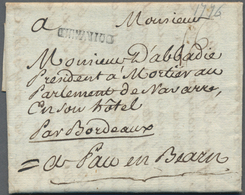 a Monsieur
Monsieur D'abbadie
President a Mortier au
Parlement de Navarre,
En son hôtel
Par Bordeaux
= a Pau en Bearn